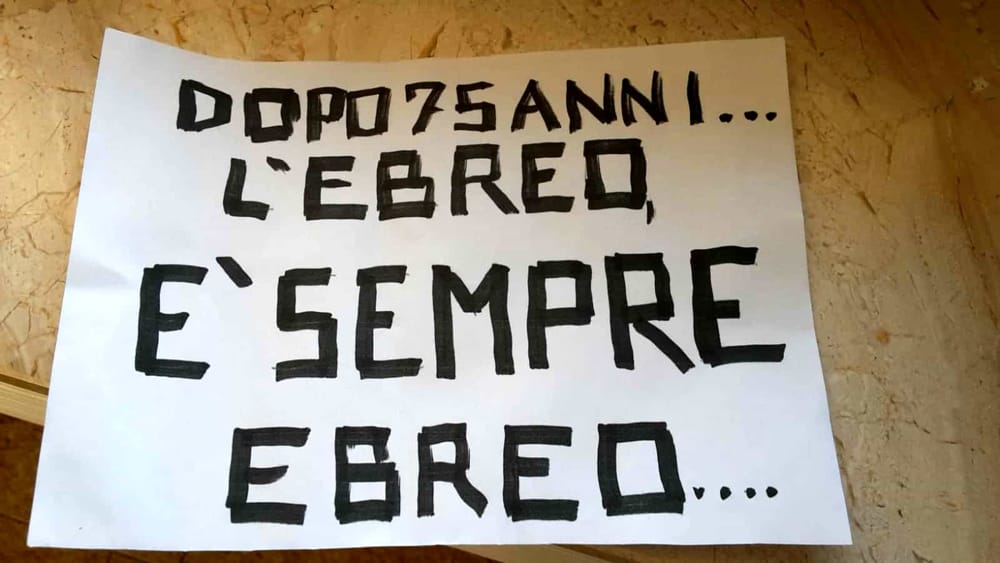 DOPO 75 ANNI...
L'EBREO,
E` SEMPRE
EBREO....